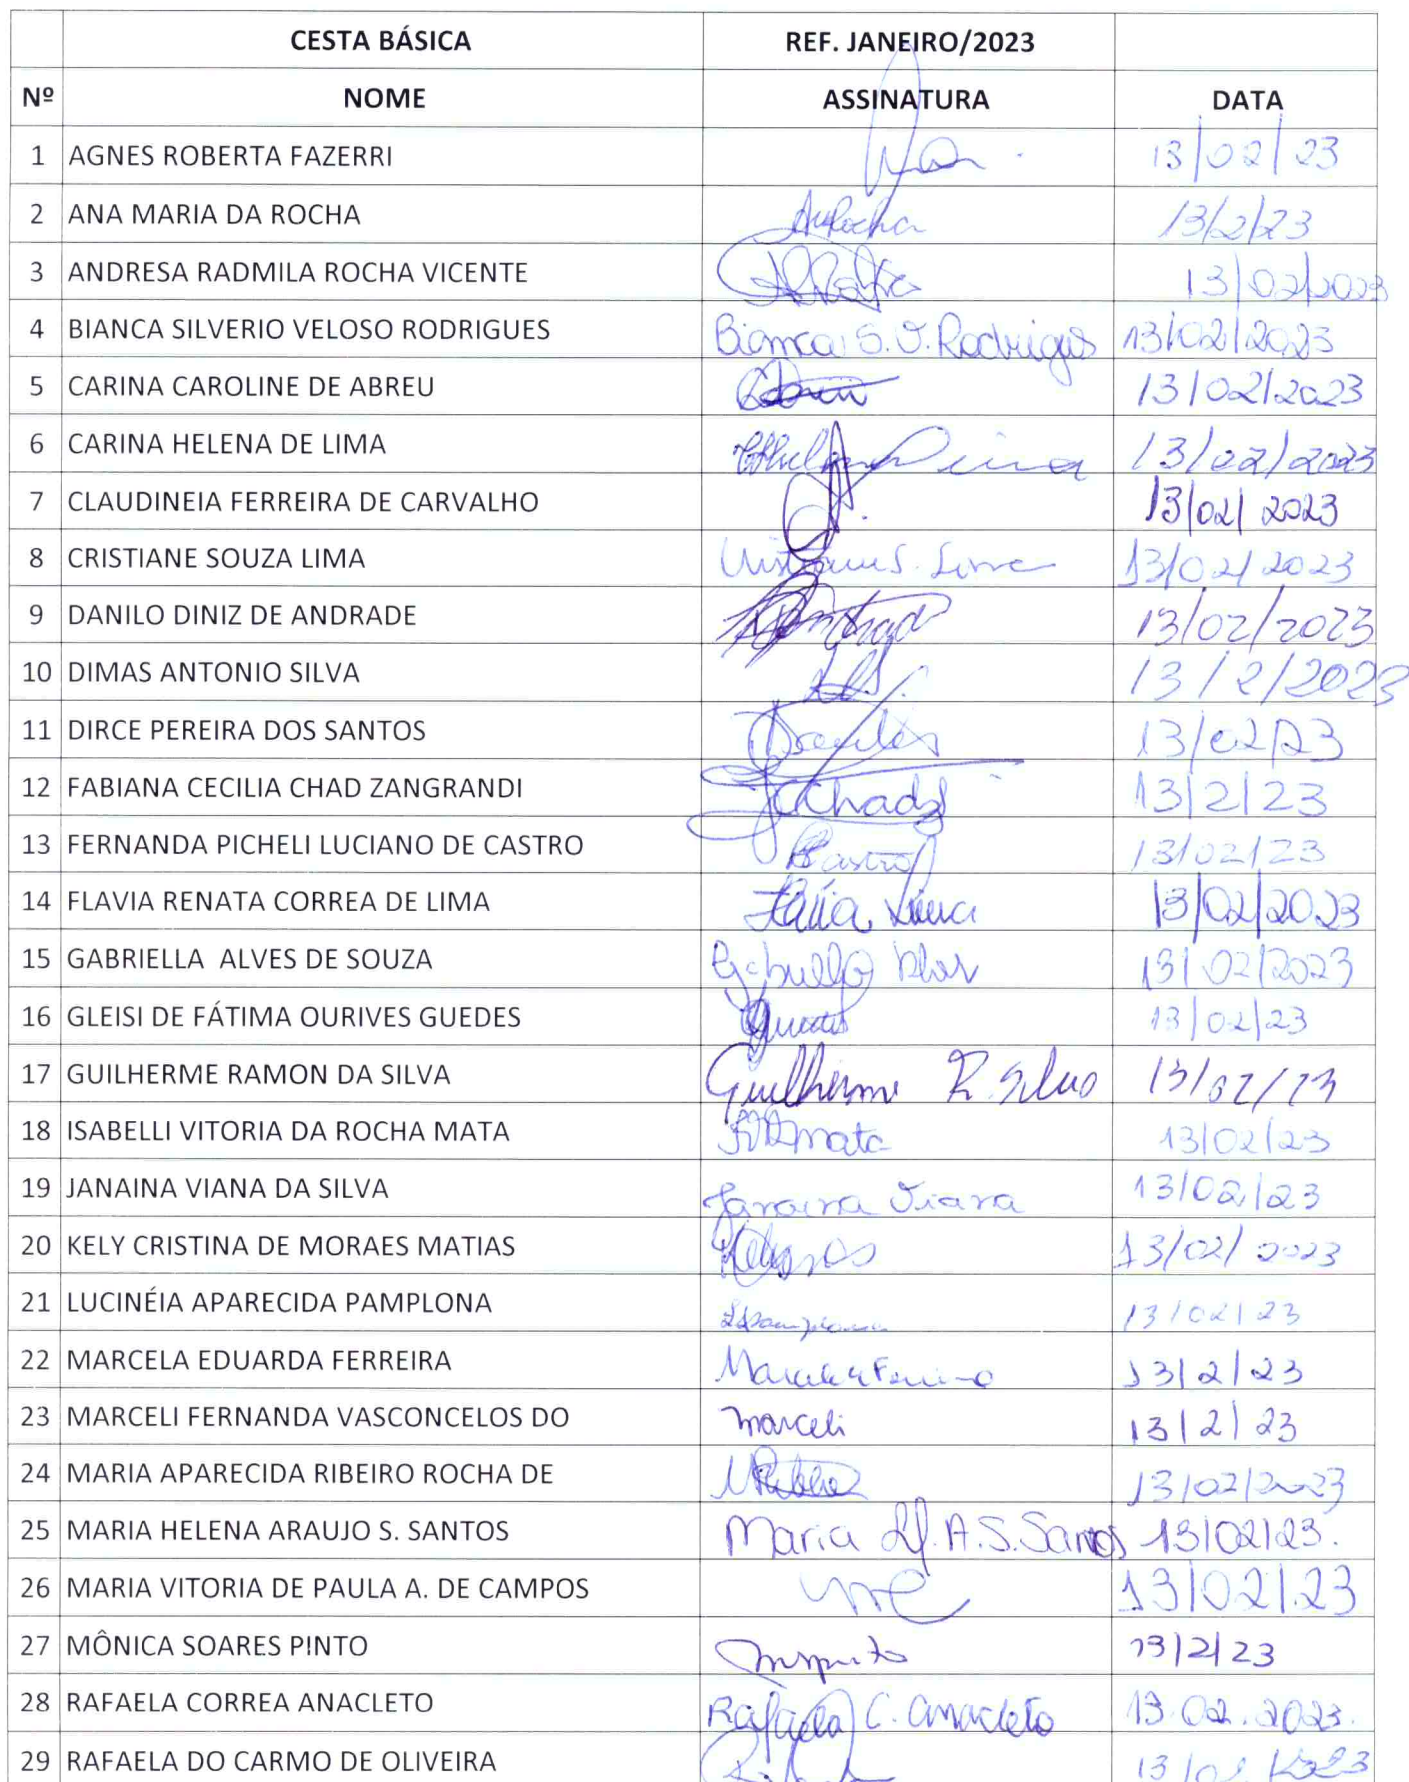 CESTA BÁSICA REF. JANEIRO/2023
Nº NOME ASSINATURA DATA
1 AGNES ROBERTA FAZERRI 13/02/23
2 ANA MARIA DA ROCHA AMRocha 13/2/23
3 ANDRESA RADMILA ROCHA VICENTE 13/02/2023
4 BIANCA SILVERIO VELOSO RODRIGUES Bianca S. V. Rodrigues 13/02/2023
5 CARINA CAROLINE DE ABREU 13/02/2023
6 CARINA HELENA DE LIMA Lima 13/02/2023
7 CLAUDINEIA FERREIRA DE CARVALHO 13/02/2023
8 CRISTIANE SOUZA LIMA Cristiane S. Lima 13/02/2023
9 DANILO DINIZ DE ANDRADE 13/02/2023
10 DIMAS ANTONIO SILVA 13/2/2023
11 DIRCE PEREIRA DOS SANTOS 13/02/23
12 FABIANA CECILIA CHAD ZANGRANDI 13/2/23
13 FERNANDA PICHELI LUCIANO DE CASTRO 13/02/23
14 FLAVIA RENATA CORREA DE LIMA Flávia Lima 13/02/2023
15 GABRIELLA ALVES DE SOUZA Gabriella Alves 13/02/2023
16 GLEISI DE FÁTIMA OURIVES GUEDES Guedes 13/02/23
17 GUILHERME RAMON DA SILVA Guilherme R. Silva 13/02/23
18 ISABELLI VITORIA DA ROCHA MATA 13/02/23
19 JANAINA VIANA DA SILVA Janaina Viana 13/02/23
20 KELY CRISTINA DE MORAES MATIAS 13/02/2023
21 LUCINÉIA APARECIDA PAMPLONA 13/02/23
22 MARCELA EDUARDA FERREIRA 13/2/23
23 MARCELI FERNANDA VASCONCELOS DO Marceli 13/2/23
24 MARIA APARECIDA RIBEIRO ROCHA DE 13/02/2023
25 MARIA HELENA ARAUJO S. SANTOS Maria H. A. S. Santos 13/02/23.
26 MARIA VITORIA DE PAULA A. DE CAMPOS 13/02/23
27 MÔNICA SOARES PINTO 13/2/23
28 RAFAELA CORREA ANACLETO Rafaela C. Anacleto 13.02.2023.
29 RAFAELA DO CARMO DE OLIVEIRA